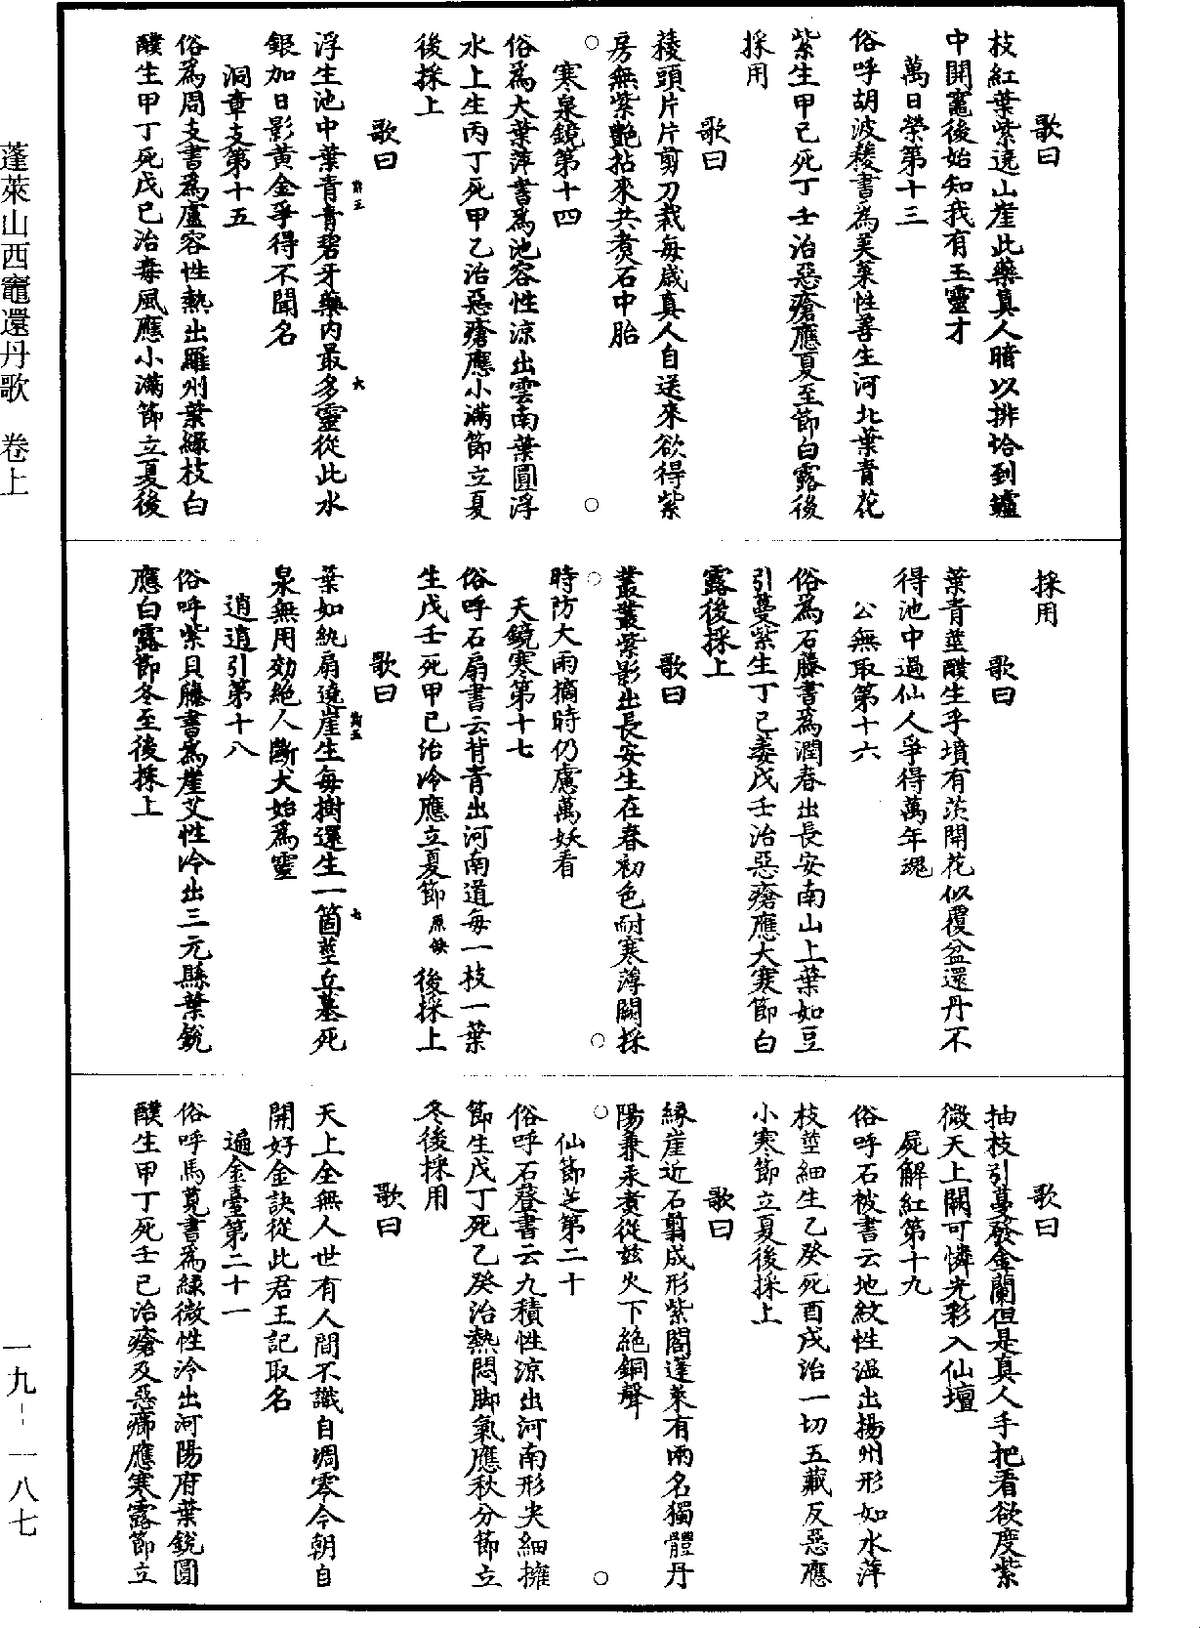 歌曰
枝紅葉紫遶山崖此藥真人暗以排恰到爐
中開竈後始知我有玉靈才
萬日榮第十三
俗呼胡波稜書為芙菜性善生河北葉青花
紫生甲己死丁壬治惡瘡應夏至節白露後
採用
歌曰
稜頭片片剪刀裁每歲真人自送來欲得紫
房無紫艷拈來共煑石中胎
寒泉鏡第十四
俗為大葉萍書為池容性涼出雲南葉圓浮
水上生丙丁死甲乙治惡瘡應小滿節立夏
後採上
歌曰
浮生池中葉青青碧牙藥內最多靈從此水
銀加日影黃金爭得不聞名
洞章支第十五
俗為周支書為廬容性熱出羅州葉綠枝白
醭生甲丁死戊巳治毒風應小滿節立夏後
採用
歌曰
葉青莖醭生乎墳有茨開花似覆盆還丹不
得池中過仙人爭得萬年魂
公無取第十六
俗為石藤書為潤春出長安南山上葉如豆
引蔓紫生丁巳萎戊壬治惡瘡應大寒節白
露後採上
歌曰
叢叢紫影出長安生在春初色耐寒薄闕採
時防大雨摘時仍慮萬妖看
天鏡寒第十七
俗呼石扇書云背青出河南道每一枝一葉
生戊壬死甲巳治冷應立夏節原缺後採上
歌曰
葉如紈扇遶崖生每樹還生一箇莖丘墓死
泉無用効絕人斷犬始為靈
逍遙引第十八
俗呼紫貝藤書為崖艾性冷出三元縣葉銳
應白露節冬至後採上
歌曰
抽枝引蔓發金蘭但是真人手把看欲度紫
微天上闕可憐光彩入仙壇
屍解紅第十九
俗呼石被書云地紋性溫出揚州形如水萍
枝莖細生乙癸死酉戌治一切五藏反惡應
小寒節立夏後採上
歌曰
緣崖近石翦成形紫閣蓬萊有兩名獨體丹
陽兼汞煑從玆火下絕銅聲
仙節芝第二十
俗呼石登書云九積性涼出河南形尖細擁
節生戊丁死乙癸治熱悶脚氣應秋分節立
冬後採用
歌曰
天上全無人世有人間不識自凋零今朝自
開好金訣從此君王記取名
遍金臺第二十一
俗呼馬莧書為綠微性冷出河陽府葉銳圓
醭生甲丁死壬巳治瘡及惡痛應寒露節立
蓬萊山西竈還丹歌 卷上
一九-一八七